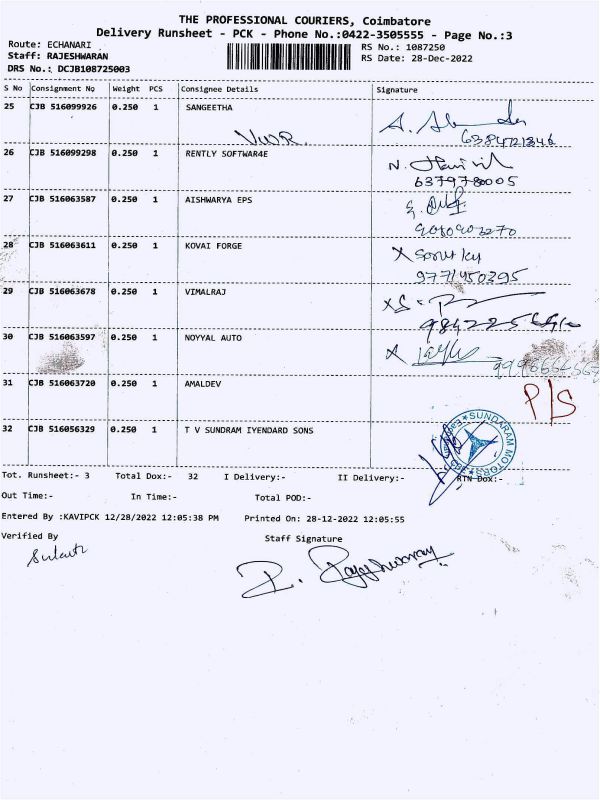 THE PROFESSIONAL COURIERS, Coimbatore
Delivery Runsheet - PCK - Phone No.:0422-3505555 - Page No.:3
Route: ECHANARI
RS No.: 1087250
Staff: RAJESHWARAN
RS Date: 28-Dec-2022
DRS No.: DCJB108725003
S No Consignment No Weight PCS Consignee Details Signature
25 CJB 516099926 0.250 1 SANGEETHA
6384721346
26 CJB 516099298 0.250 1 RENTLY SOFTWAR4E
6379780005
27 CJB 516063587 0.250 1 AISHWARYA EPS
28 CJB 516063611 0.250 1 KOVAI FORGE
9771450395
29 CJB 516063678 0.250 1 VIMALRAJ
30 CJB 516063597 0.250 1 NOYYAL AUTO
31 CJB 516063720 0.250 1 AMALDEV
P/S
32 CJB 516056329 0.250 1 T V SUNDRAM IYENDARD SONS
SUNDARAM MOTORS
Tot. Runsheet:- 3 Total Dox:- 32 I Delivery:- II Delivery:- RTN Dox:-
Out Time:- In Time:- Total POD:-
Entered By :KAVIPCK 12/28/2022 12:05:38 PM Printed On: 28-12-2022 12:05:55
Verified By Staff Signature